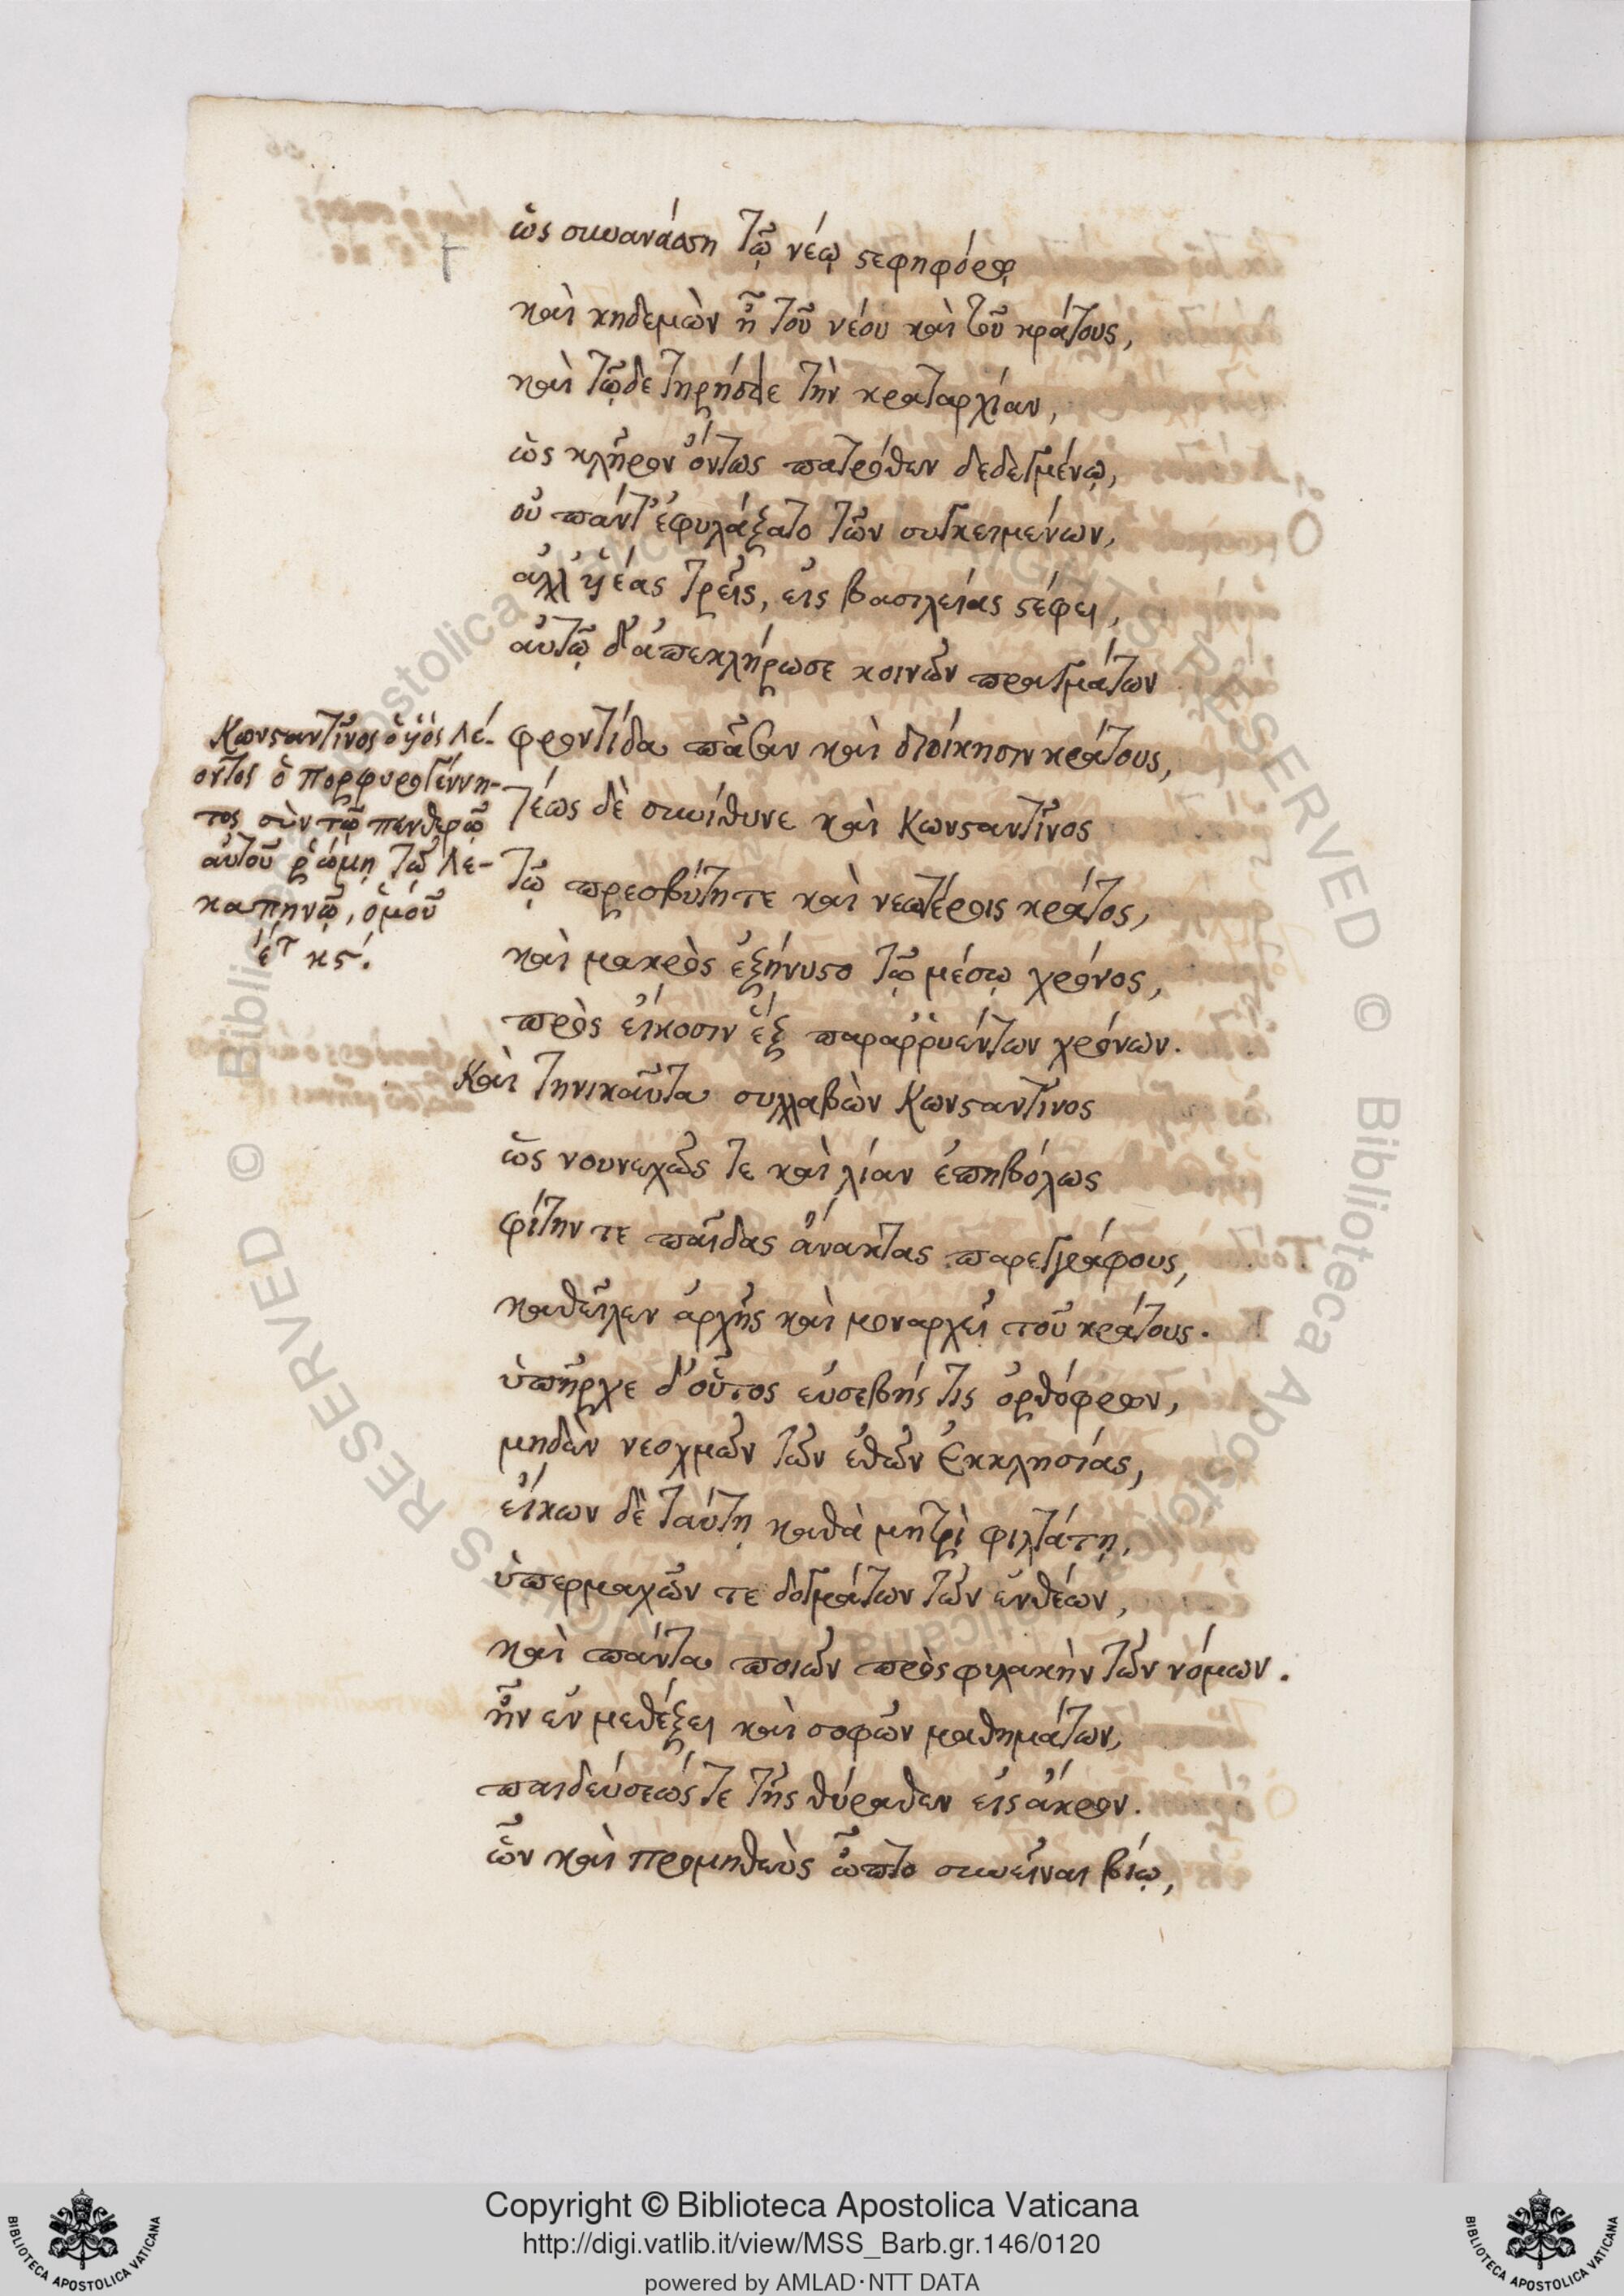 ὡς συνανάσση τῷ νέῳ στεφηφόρῳ
καὶ κηδεμὼν ᾖ τοῦ νέου καὶ τοῦ κράτους,
καὶ τῷδε τηρήσειε τὴν κραταρχίαν,
ὡς κλῆρον ὄντως πατρόθεν δεδεγμένῳ,
οὐ πάντ' ἐφυλάξατο τῶν συγκειμένων,
ἀλλ' υἱέας τρεῖς, εἰς βασιλείας στέφει,
αὐτῷ δ' ἀπεκλήρωσε κοινῶν πραγμάτων
φροντίδα πᾶσαν καὶ διοίκησιν κράτους,
τέως δὲ συνίθυνε καὶ Κωνσταντῖνος
τῷ πρεσβύτῃ τε καὶ νεωτέροις κράτος,
καὶ μακρὸς ἐξήνυστο τῷ μέσῳ χρόνος,
πρὸς εἴκοσιν ἓξ παραῤῥυέντων χρόνων.
Καὶ τηνικαῦτα συλλαβὼν Κωνσταντῖνος
ὡς νουνεχῶς τε καὶ λίαν ἐπηβόλως
φίτην τε παῖδας ἄνακτας παρεγγράφους,
καθεῖλεν ἀρχῆς καὶ μοναρχεῖ τοῦ κράτους.
ὑπῆρχε δ' οὗτος εὐσεβής τις ὀρθόφρων,
μηδὲν νεοχμῶν τῶν ἐθῶν Ἐκκλησίας,
εἴκων δὲ ταύτῃ καθὰ μητρὶ φιλτάτῃ,
ὑπερμαχῶν τε δογμάτων τῶν ἐνθέων,
καὶ πάντα ποιῶν πρὸς φυλακὴν τῶν νόμων.
ἦν ἐν μεθέξει καὶ σοφῶν μαθημάτων,
παιδεύσεώς τε τῆς θύραθεν εἰς ἄκρον.
ὧν καὶ προμηθεὺς ὦπτο συνεῖναι βίῳ,
Κωνσταντῖνος ὁ υἱός Λέ-
οντος ὁ πορφυρογέννη-
τος σὺν τῷ πενθερῷ
αὐτοῦ ῥώμῃ τῷ λε-
καπηνῷ, ὁμοῦ
ἔτ κϛ.
Copyright © Biblioteca Apostolica Vaticana
http://digi.vatlib.it/view/MSS_Barb.gr.146/0120
powered by AMLAD·NTT DATA
BIBLIOTECA APOSTOLICA VATICANA
BIBLIOTECA APOSTOLICA VATICANA